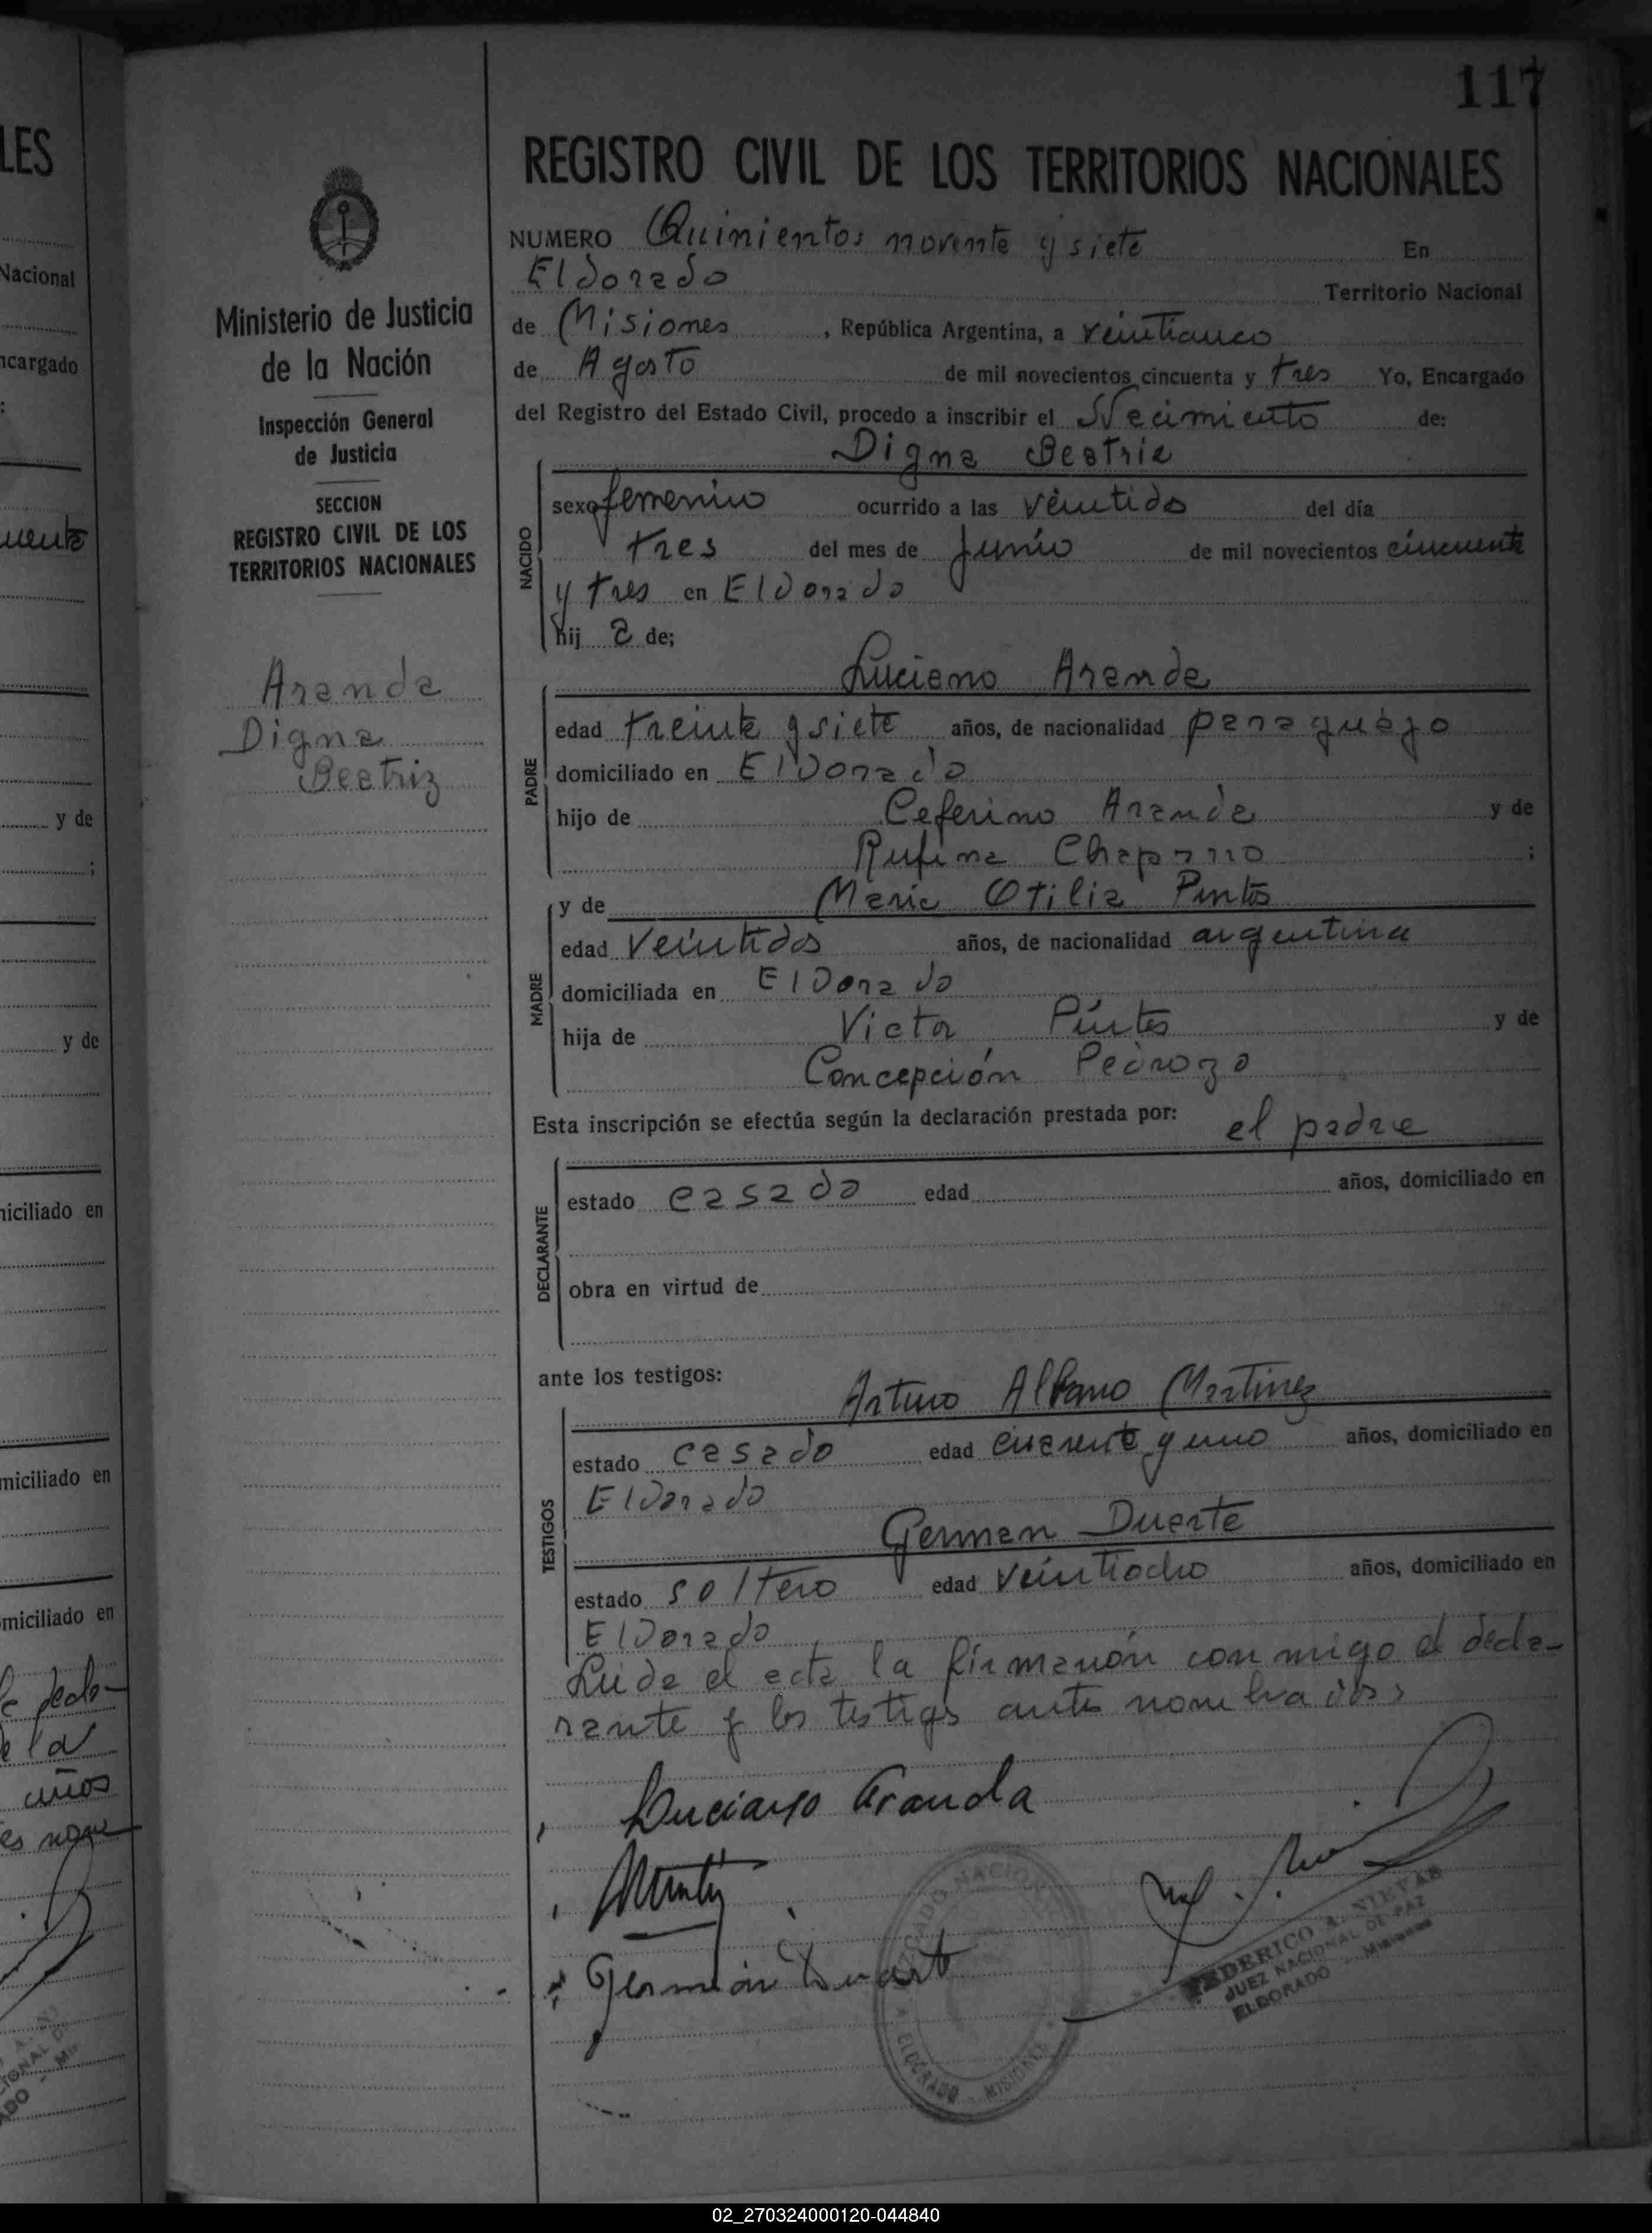 117
LES
Nacional
ncargado
:
y de
;
y de
niciliado en
miciliado en
miciliado en
decla-
e la
años
Ministerio de Justicia
de la Nación
Inspección General
de Justicia
SECCION
REGISTRO CIVIL DE LOS
TERRITORIOS NACIONALES
Aranda
Digna
Beatriz
REGISTRO CIVIL DE LOS TERRITORIOS NACIONALES
NUMERO Quinientos noventa y siete En
Eldorado Territorio Nacional
de Misiones, República Argentina, a veinticinco
de Agosto de mil novecientos cincuenta y tres Yo, Encargado
del Registro del Estado Civil, procedo a inscribir el Nacimiento de:
Digna Beatriz
NACIDO
sexo femenino ocurrido a las veintidos del día
tres del mes de Junio de mil novecientos cincuenta
y tres en Eldorado
hij a de;
Luciano Aranda
PADRE
edad treinta y siete años, de nacionalidad paraguayo
domiciliado en Eldorado
hijo de Ceferino Aranda y de
Rufina Chaparro ;
y de Maria Otilia Pintos
MADRE
edad veintidos años, de nacionalidad argentina
domiciliada en Eldorado
hija de Victor Pintos y de
Concepción Pedrozo
Esta inscripción se efectúa según la declaración prestada por: el padre
DECLARANTE
estado casado edad años, domiciliado en
obra en virtud de
ante los testigos:
Arturo Albano Martinez
TESTIGOS
estado casado edad cuarenta y uno años, domiciliado en
Eldorado
German Duarte
estado soltero edad veintiocho años, domiciliado en
Eldorado
Leida el acta la firmarón conmigo el decla-
rante y los testigos antes nombrados
Luciano Aranda
German Duarte
JUZGADO NACIONAL
ELDORADO - MISIONES
FEDERICO A. NIEVAS
JUEZ NACIONAL DE PAZ
ELDORADO Misiones
02_270324000120-044840